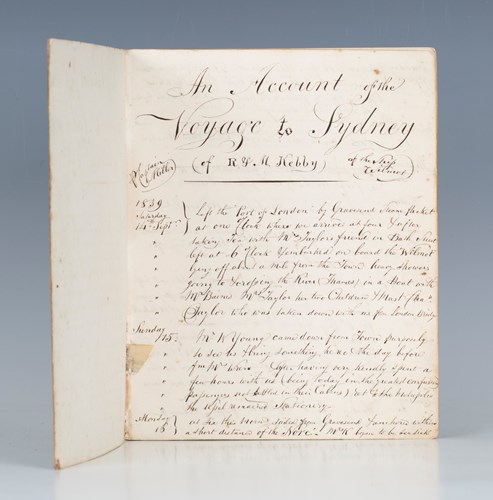 An Account of the
Voyage to Sydney
(of R & M Hebby) of the Ship Wilmot
Captain Miller
1839
Saturday Left the Port of London by Gravesend Steam Packet
14th Septr. at one Clock where we arrive at four & after
" taking Tea with Mrs Taylors friend in Bath Street
" left at 6 Clock & embarked on board the Wilmot
" lying off about a mile from the Town heavy showers
" going to & crossing the River (Thames) in a Boat with
" Mr Mrs Taylor her two Children & Mast
" Taylor who was taken down with us from London
Sunday
15 Mr W Young came down from Town purposely
" to see us & bring something he the day before
" Mr After having very kindly spent a
" few hours with us (being today in the greatest confusion
" not settled in their Cabins)
" the Stationery
Monday at five this Morng. sailed from Gravesend within
16 a short distance of the Nore. Mr began to be sea sick